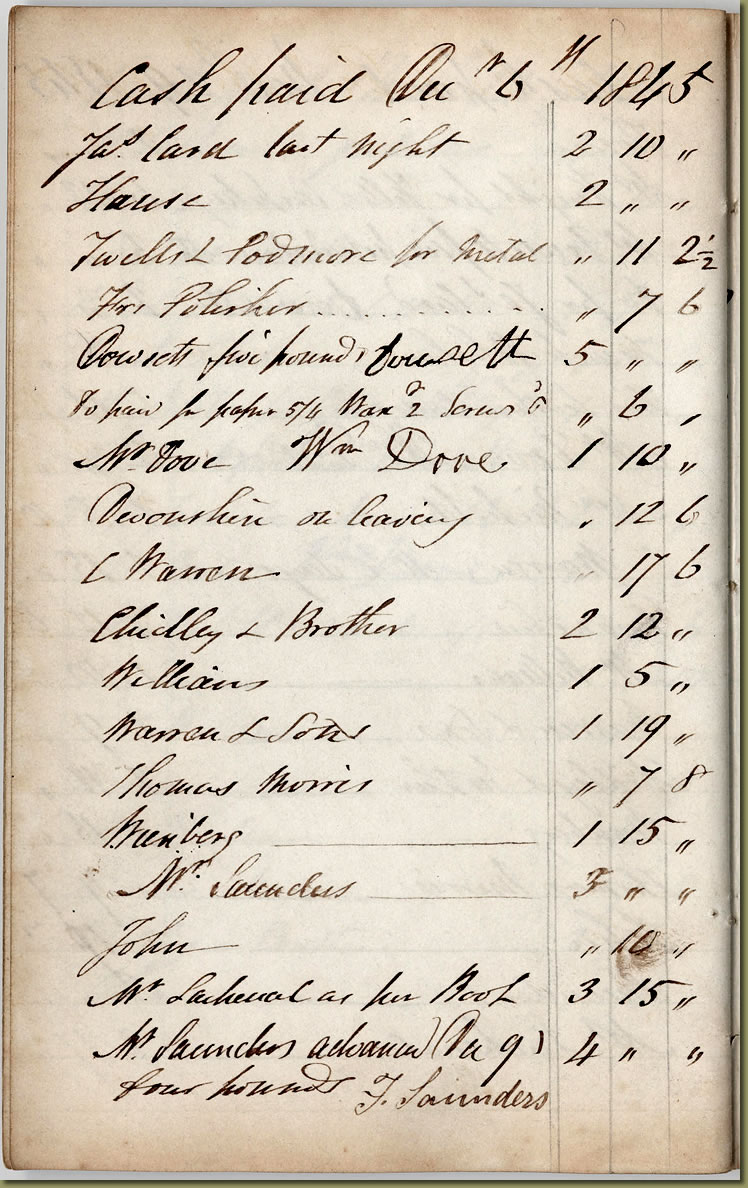 Cash paid Decr 6th 1845
Jas. Card last night 2 10 "
Hause 2 " "
Twells & Podmore for Metal " 11 2 1/2
Frs Polisher . . . . . . . . . . . " 7 6
Dowsett five pounds Dowsett 5 " "
Do paid for paper 5/4 2 Screws " 6 "
Mr Dove Wm Dove 1 10 "
Devonshire on leaving " 12 6
C Warren " 17 6
Chidley & Brother 2 12 "
Williams 1 5 "
Warren & Sons 1 19 "
Thomas Morris " 7 8
Weinberg 1 15 "
Mr. Saunders 3 " "
John " 10 "
Mr Lachenal as per Book 3 15 "
Mr Saunders advanced (Dec 9) 4 " "
four pounds F. Saunders